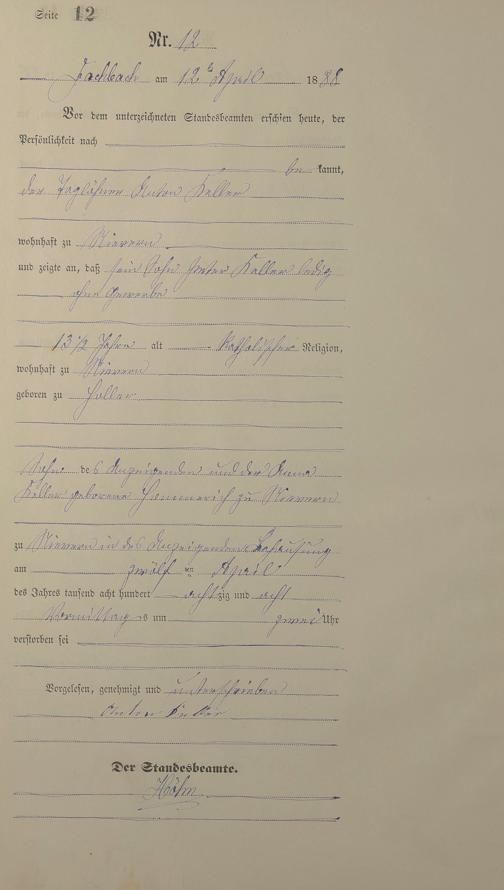 Seite 12
Nr. 12
Fachbach am 12t April 1888
Vor dem unterzeichneten Standesbeamten erschien heute, der
Persönlichkeit nach
be kannt,
der Taglöhner Anton Keller
wohnhaft zu Nievern
und zeigte an, daß sein Sohn Peter Keller ledig
ohne Gewerbe
13 1/2 Jahre alt katholischer Religion,
wohnhaft zu Nievern
geboren zu
Sohn des Anzeigenden und der Anna
Keller geborene Hammerich zu Nievern
zu Nievern in des Anzeigenden Behausung
am zwölf ten April
des Jahres tausend acht hundert achtzig und acht
Vormittags um zwei Uhr
verstorben sei
Vorgelesen, genehmigt und unterschrieben
Anton Keller
Der Standesbeamte.